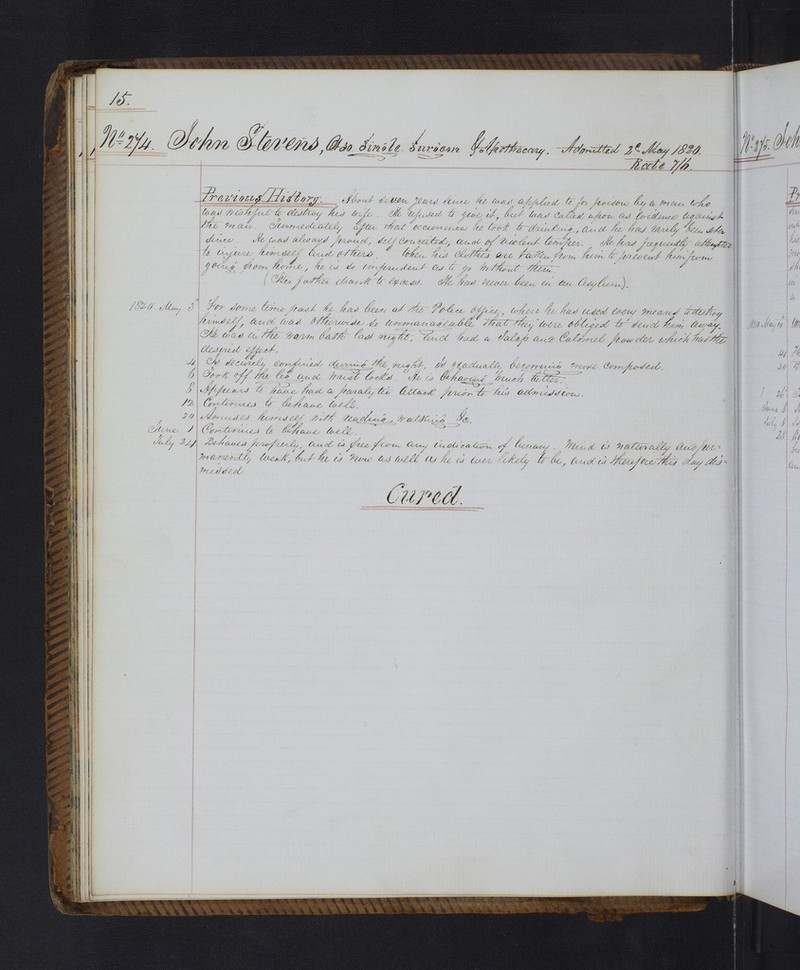 15.
No. 274. John Stevens, Single. Surgeon & Apothecary. Admitted 2d May 1820.
Rate 7/6.
Previous History. About seven years since he was applied to for poison by a man who
was wishful to destroy his wife. He refused to give it, but was called upon as evidence against
the man. Immediately after that occurrence he took to drinking, and he has rarely been sober
since. He was always proud, self conceited, and of violent temper. He has frequently attempted
to injure himself and others. When his clothes are taken from him to prevent him from
going from home, he is so imprudent as to go without them.
(His father drank to excess. He has never been in an Asylum).
May 3d For some time past he has been at the Police office, where he has used every means to destroy
himself, and was otherwise so unmanageable that they were obliged to send him away.
He was in the warm bath last night, and had a Jalap and Calomel powder which has the
desired effect.
4 Is securely confined during the night, is gradually becoming more composed.
6 Took off the leg and waist locks. He is behaving much better.
8 Appears to have had a paralytic attack prior to his admission.
12 Continues to behave well.
20 Amuses himself with reading, walking &c.
June 1 Continues to behave well.
July 24 Behaves properly, and is free from any indication of lunacy. Mind is naturally and per-
manently weak, but he is now as well as he is ever likely to be, and is therefore this day dis-
missed
Cured.
No. 275. Joh